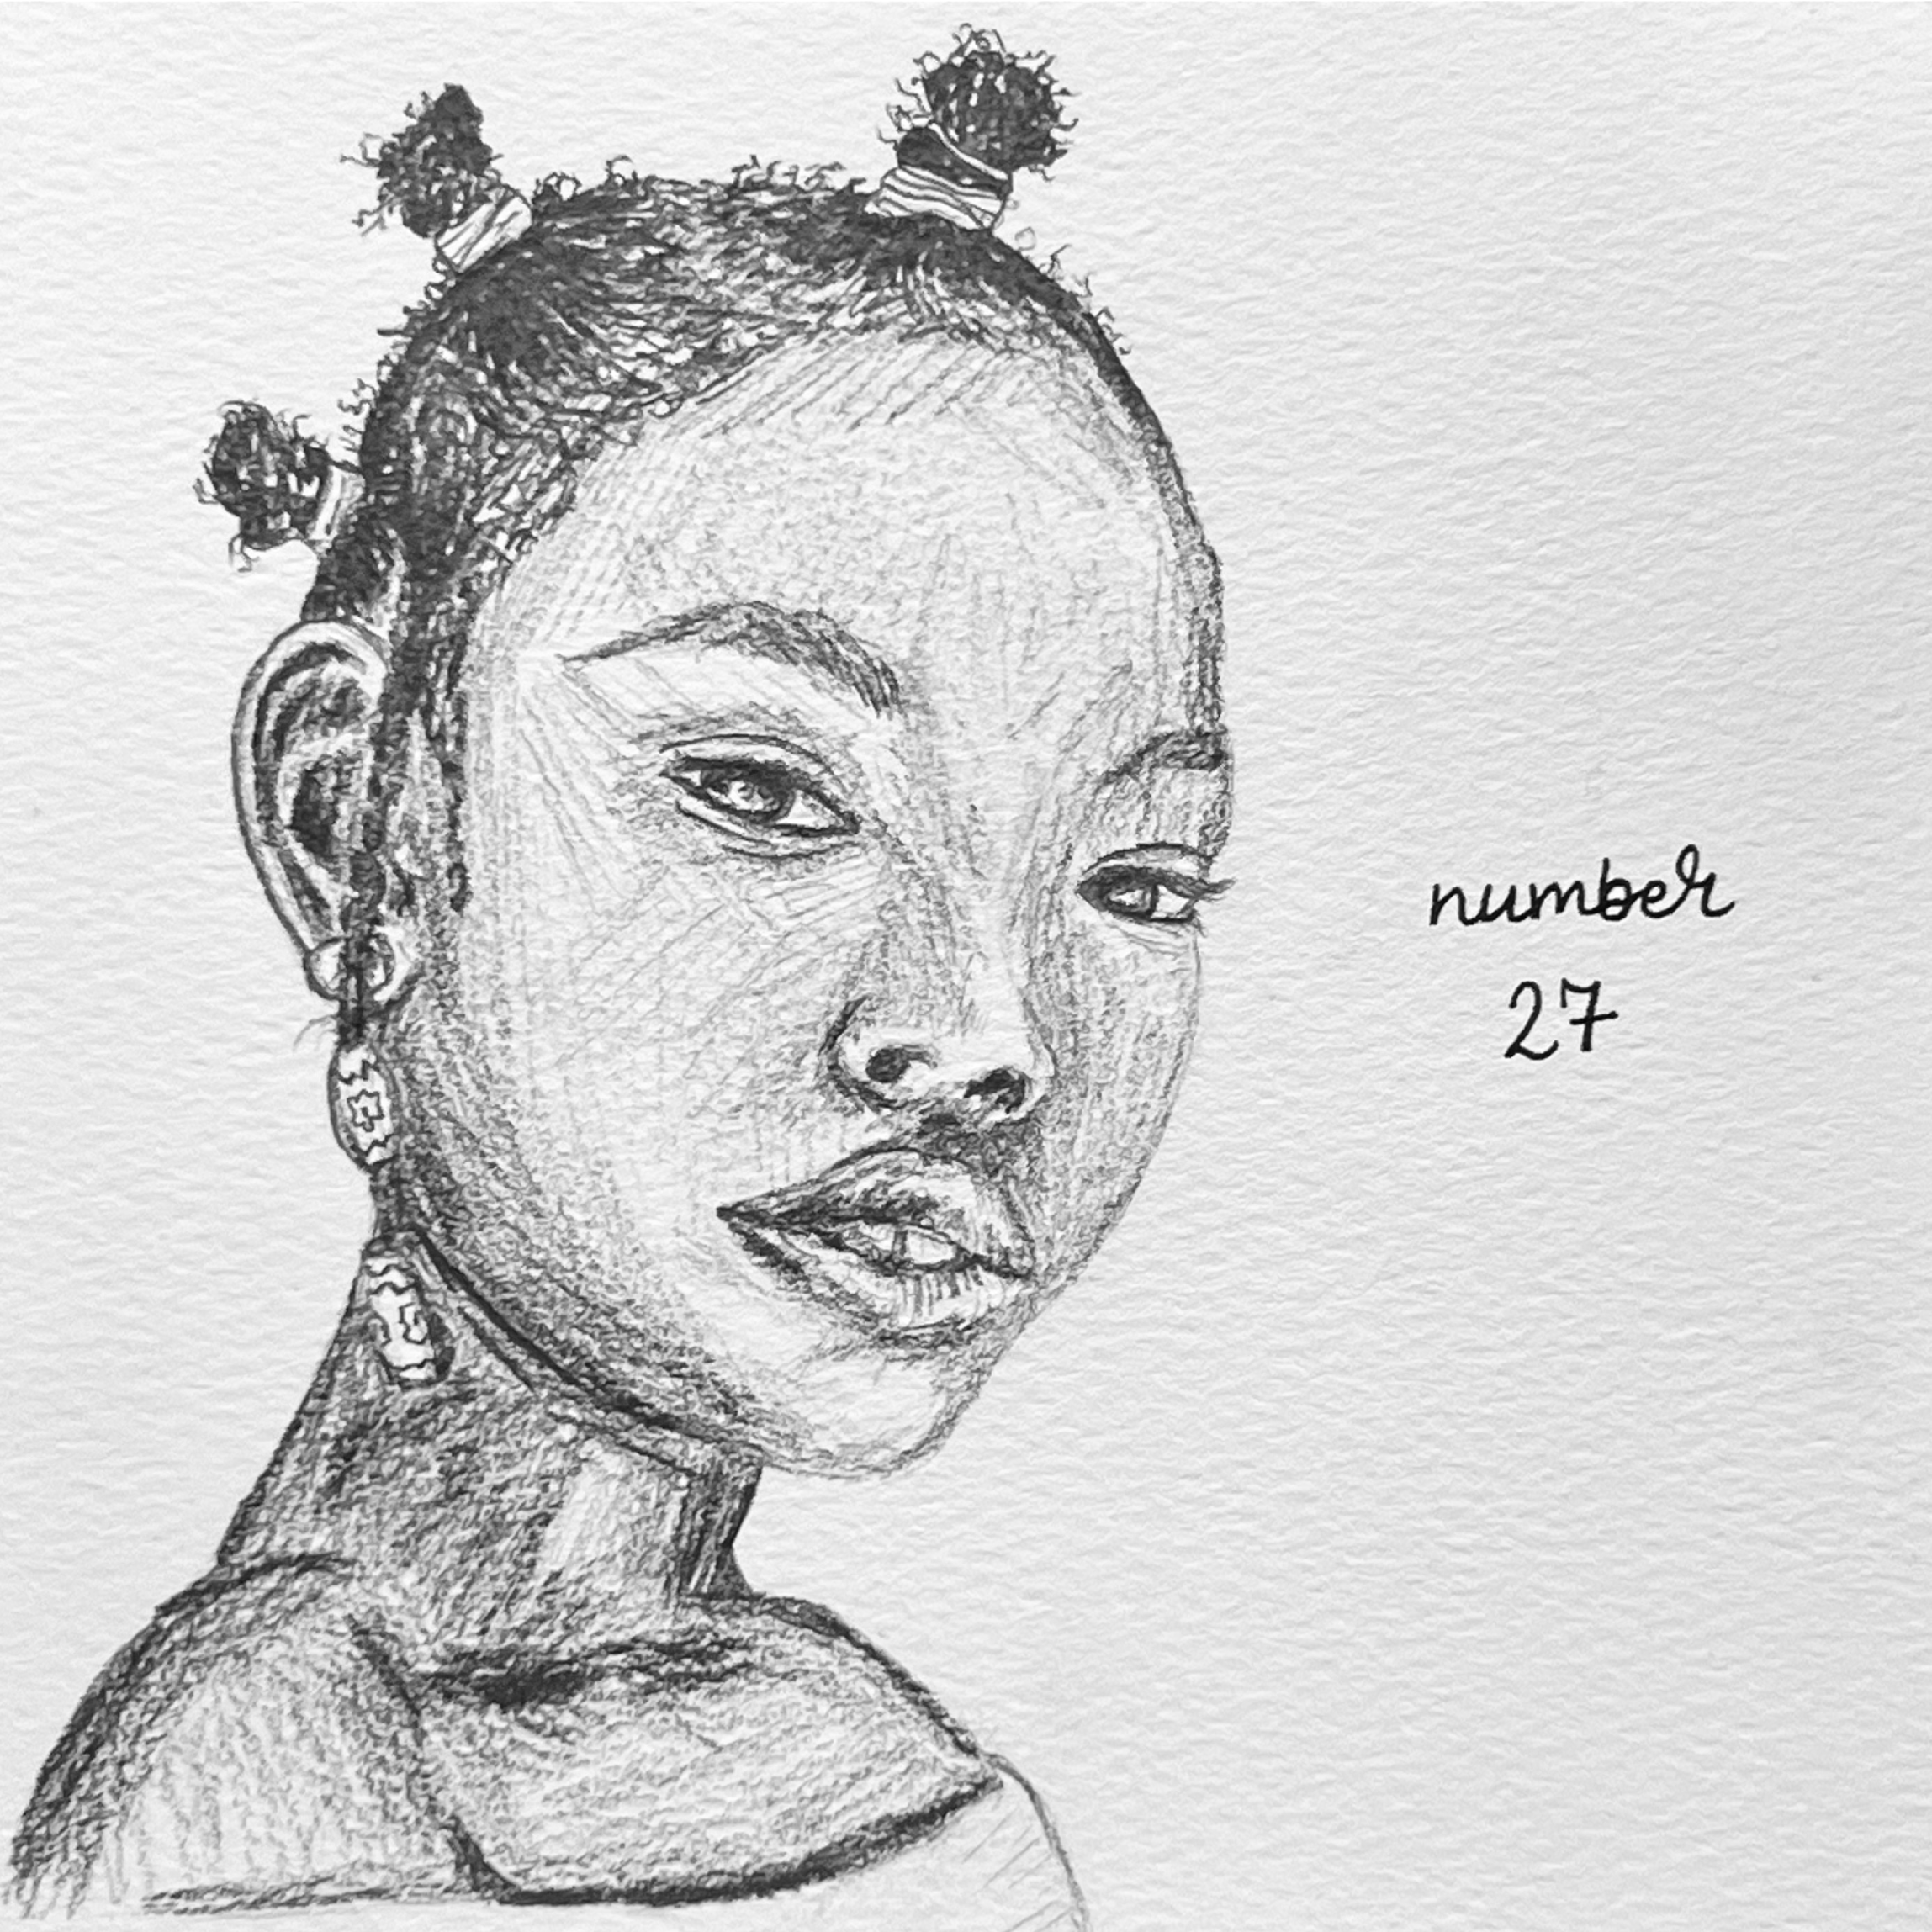 number
27